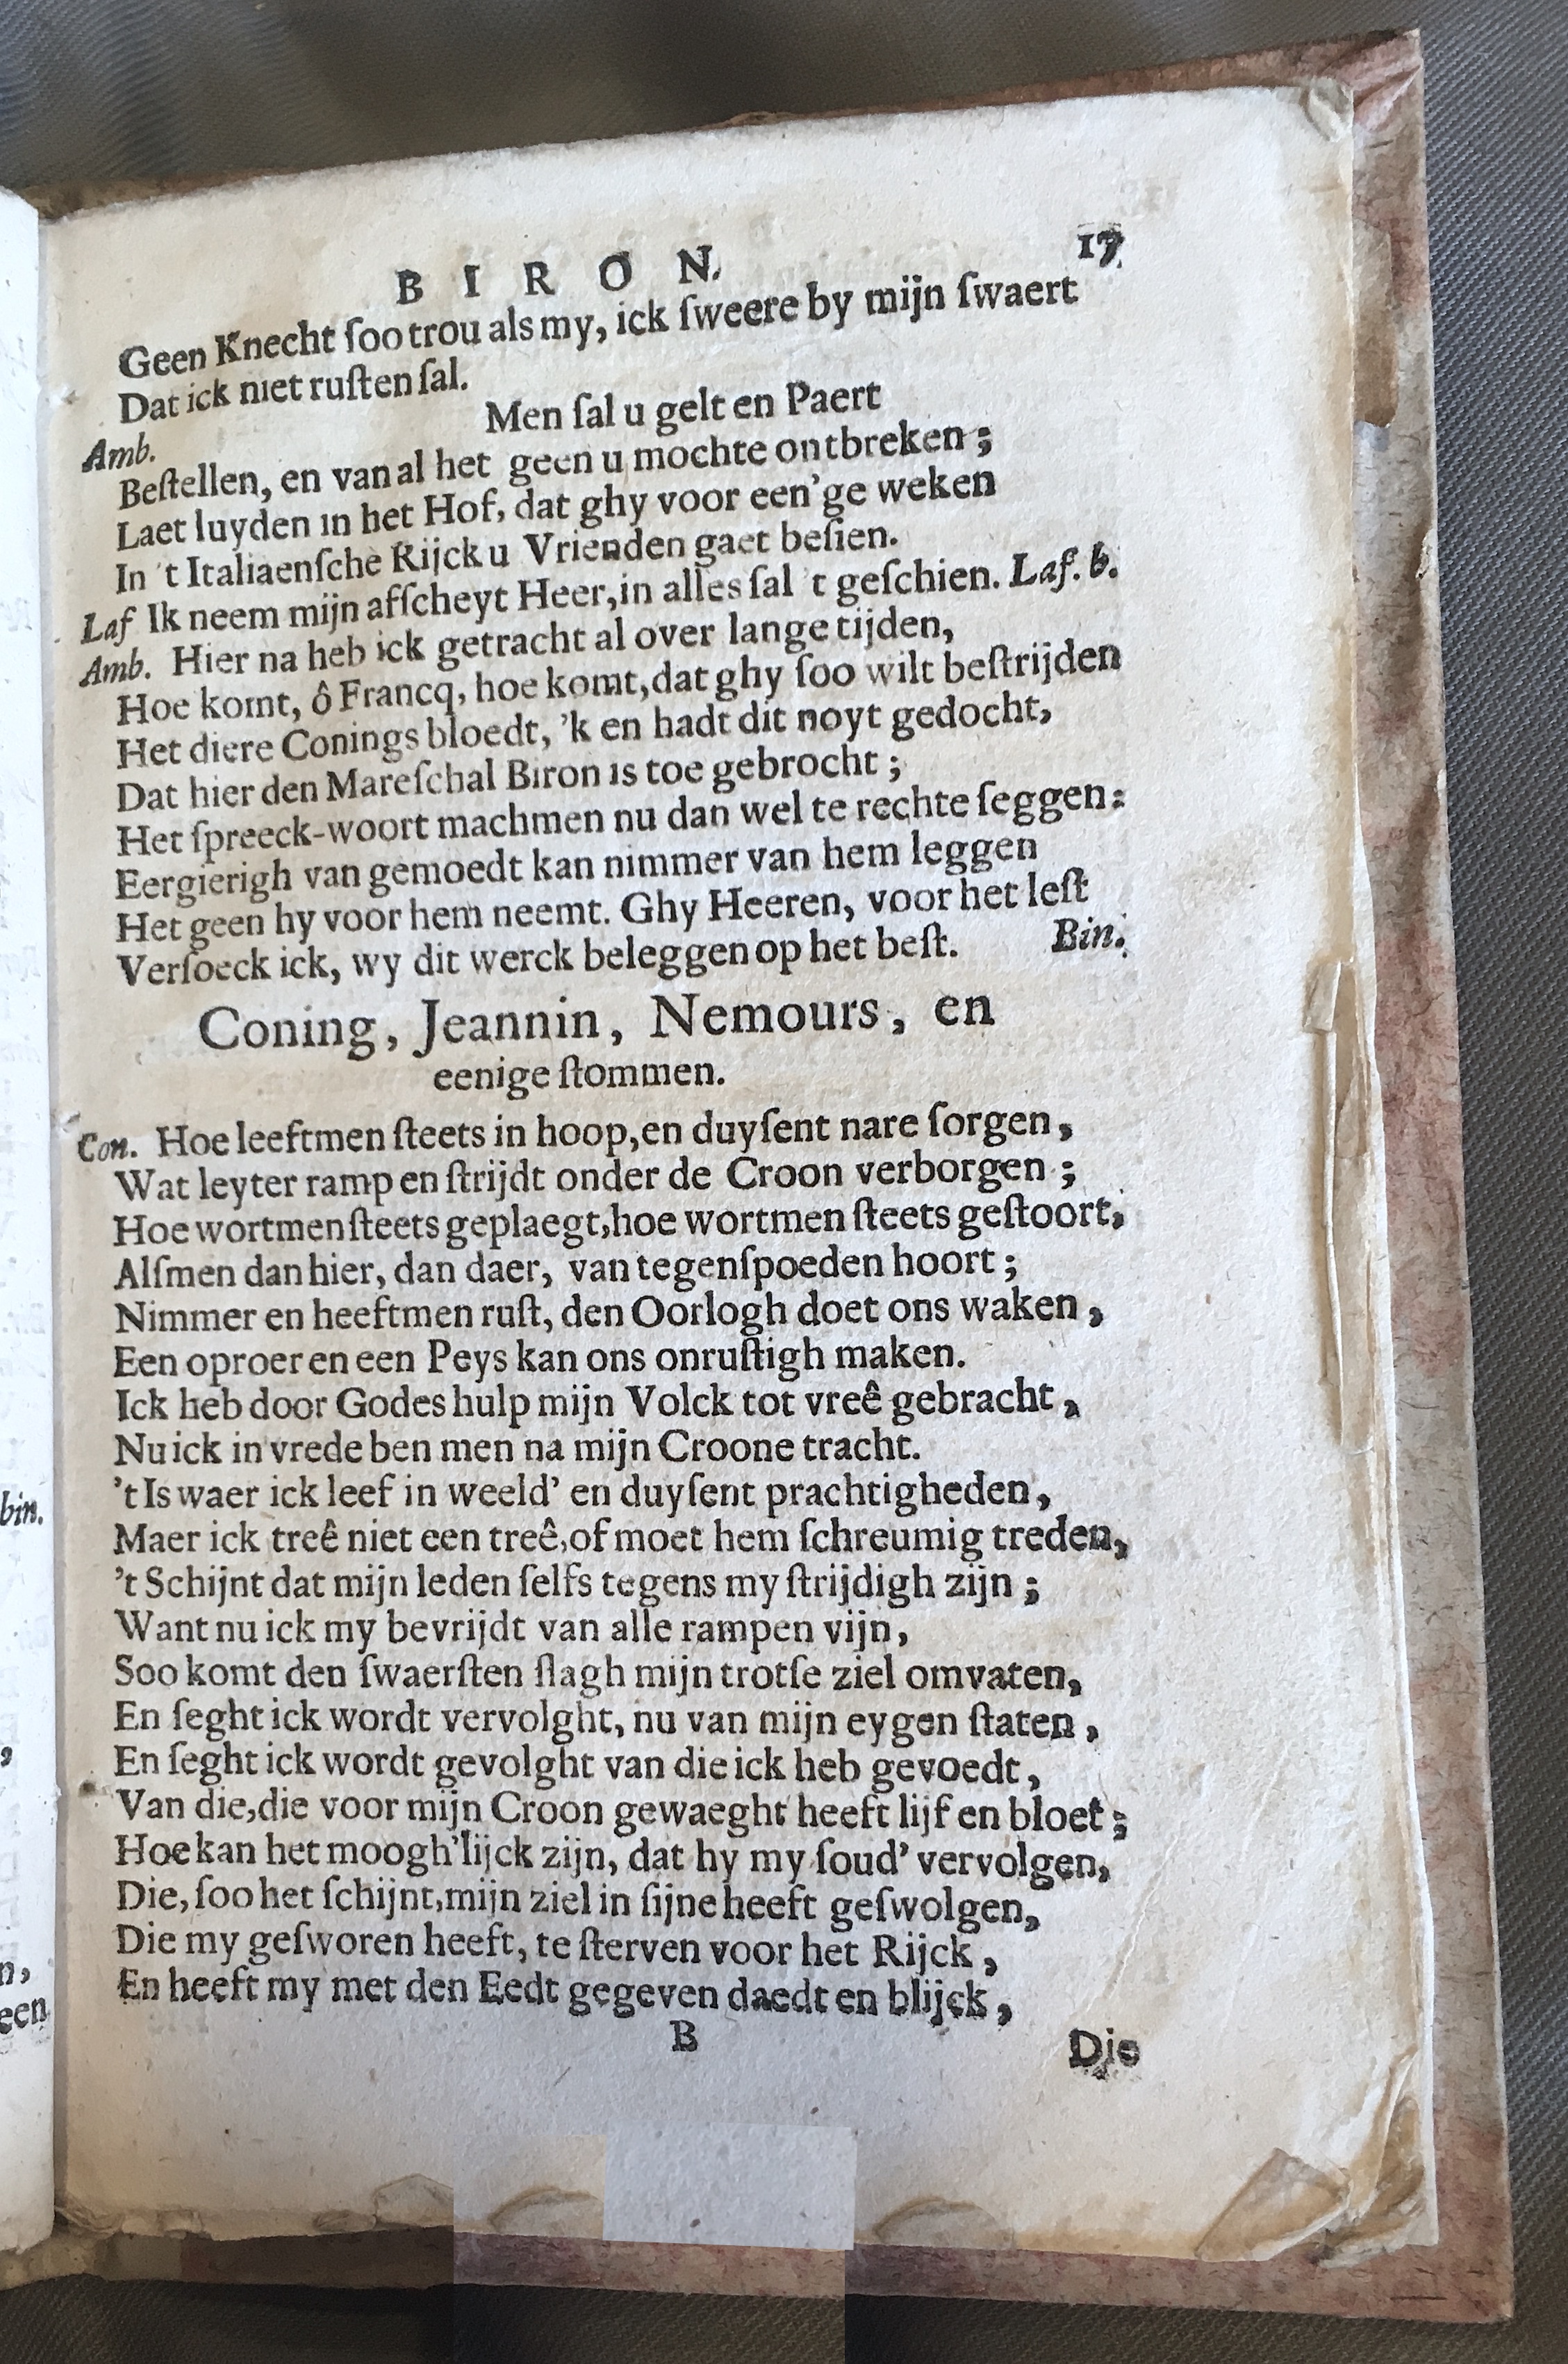 BIRON. 17
Geen Knecht ſoo trou als my, ick ſweere by mijn ſwaert
Dat ick niet ruſten ſal.
Amb. Men ſal u gelt en Paert
Beſtellen, en van al het geen u mochte ontbreken;
Laet luyden in het Hof, dat ghy voor een'ge weken
In 't Italiaenſche Rijck u Vrienden gaet beſien.
Laf Ik neem mijn afſcheyt Heer, in alles ſal 't geſchien. Laf. b.
Amb. Hier na heb ick getracht al over lange tijden,
Hoe komt, ô Francq, hoe komt, dat ghy ſoo wilt beſtrijden
Het diere Conings bloedt, 'k en hadt dit noyt gedocht,
Dat hier den Mareſchal Biron is toe gebrocht;
Het ſpreeck-woort machmen nu dan wel te rechte ſeggen:
Eergierigh van gemoedt kan nimmer van hem leggen
Het geen hy voor hem neemt. Ghy Heeren, voor het leſt
Verſoeck ick, wy dit werck beleggen op het beſt. Bin.
Coning, Jeannin, Nemours, en
eenige ſtommen.
Con. Hoe leeftmen ſteets in hoop, en duyſent nare ſorgen,
Wat leyter ramp en ſtrijdt onder de Croon verborgen;
Hoe wortmen ſteets geplaegt, hoe wortmen ſteets geſtoort,
Alſmen dan hier, dan daer, van tegenſpoeden hoort;
Nimmer en heeftmen ruſt, den Oorlogh doet ons waken,
Een oproer en een Peys kan ons onruſtigh maken.
Ick heb door Godes hulp mijn Volck tot vreê gebracht,
Nu ick in vrede ben men na mijn Croone tracht.
't Is waer ick leef in weeld' en duyſent prachtigheden,
Maer ick treê niet een treê, of moet hem ſchreumig treden,
't Schijnt dat mijn leden ſelfs tegens my ſtrijdigh zijn;
Want nu ick my bevrijdt van alle rampen vijn,
Soo komt den ſwaerſten ſlagh mijn trotſe ziel omvaten,
En ſeght ick wordt vervolght, nu van mijn eygen ſtaten,
En ſeght ick wordt gevolght van die ick heb gevoedt,
Van die, die voor mijn Croon gewaeght heeft lijf en bloet;
Hoe kan het moogh'lijck zijn, dat hy my ſoud' vervolgen,
Die, ſoo het ſchijnt, mijn ziel in ſijne heeft geſwolgen,
Die my geſworen heeft, te ſterven voor het Rijck,
En heeft my met den Eedt gegeven daedt en blijck,
B Die
bin.
,
n,
een